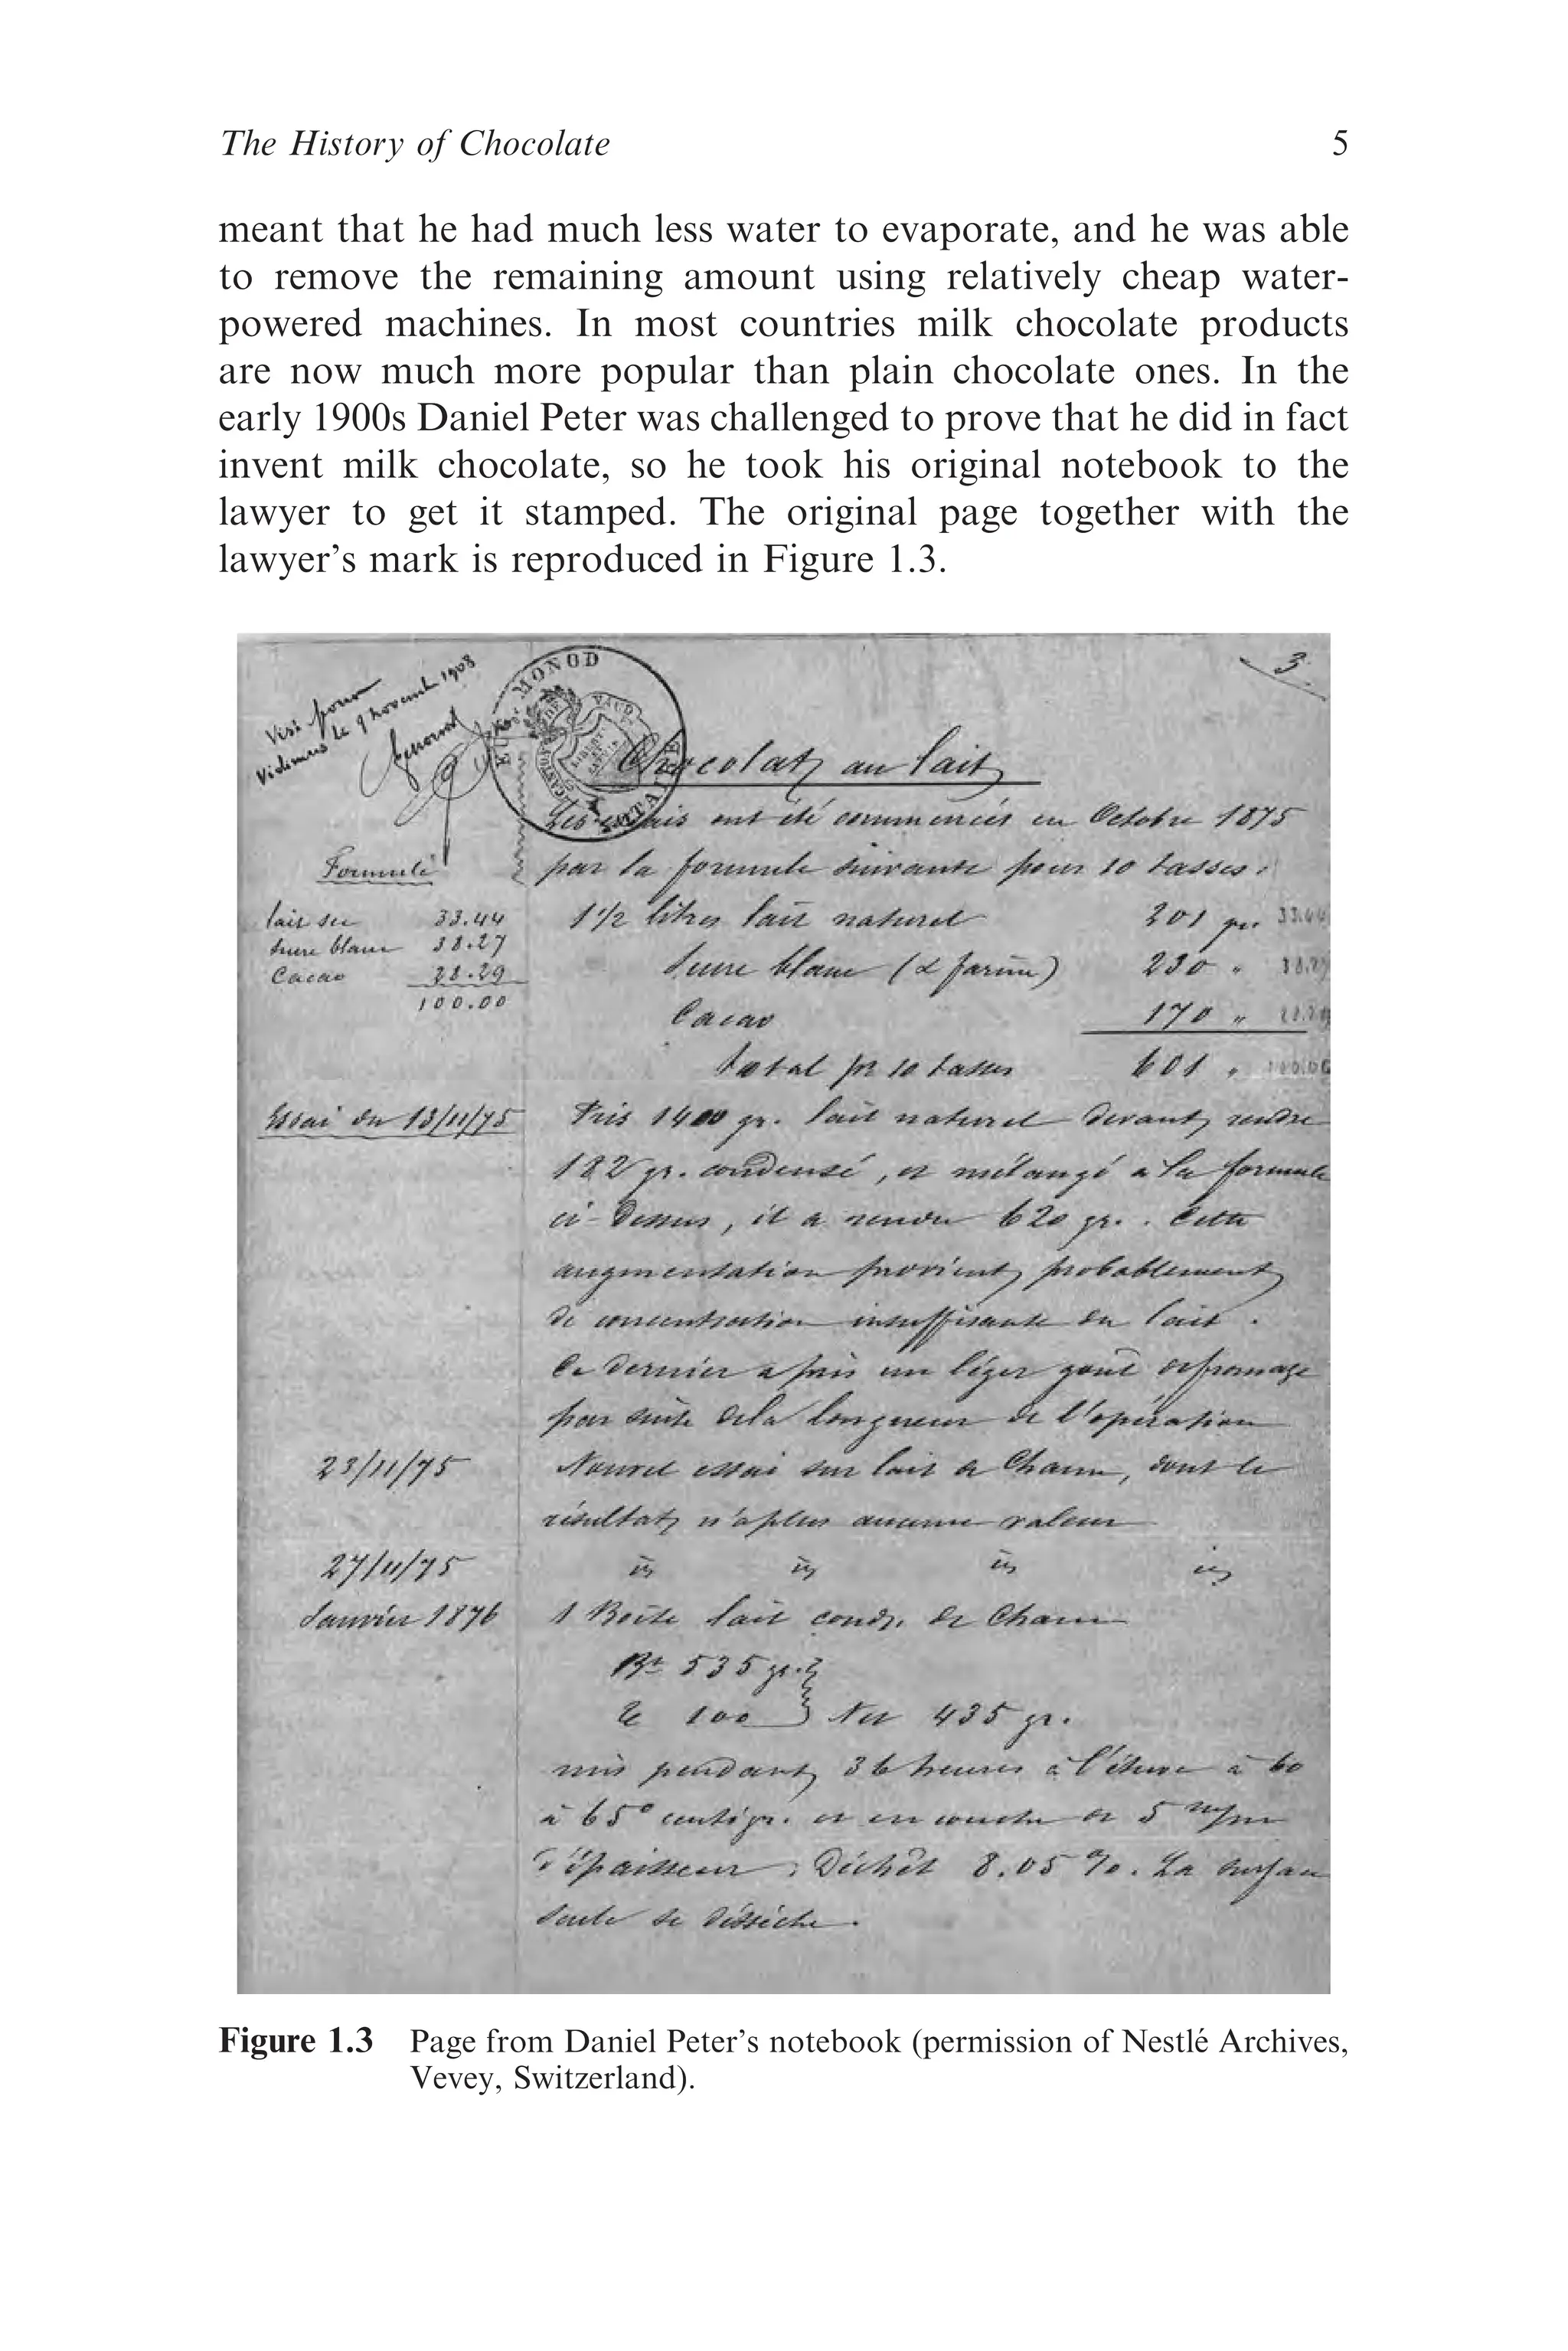 The History of Chocolate 5
meant that he had much less water to evaporate, and he was able
to remove the remaining amount using relatively cheap water-
powered machines. In most countries milk chocolate products
are now much more popular than plain chocolate ones. In the
early 1900s Daniel Peter was challenged to prove that he did in fact
invent milk chocolate, so he took his original notebook to the
lawyer to get it stamped. The original page together with the
lawyer's mark is reproduced in Figure 1.3.
3.
Visé pour
Vidimus le 9 novembre 1908
MONOD
Chocolat au lait
Les essais ont été commencés en Octobre 1875
par la formule suivante pour 10 tasses :
Formule
lait sec 33.44
sucre blanc 38.27
Cacao 28.29
100.00
1 1/2 litres lait naturel 201 gr. 33.44
Sucre blanc (& farine) 230 " 38.27
Cacao 170 " 28.29
total pr 10 tasses 601 " 100.00
Essai du 13/11/75 Pris 1400 gr. lait naturel devant rendre
182 gr. condensé, et mélangé a la formule
ci-dessus, il a rendu 620 gr.. Cette
augmentation provient probablement
de concentration insuffisante du lait.
Ce dernier a pris un léger goût de fromage
par suite de la longueur de l'opération
23/11/75 Nouvel essai sur lait de Cham, dont le
résultat n'a plus aucune valeur
27/11/75
Janvier 1876 1 Boîte lait cond. de Cham
Bt 535 gr.
Te 100 Net 435 gr.
mis pendant 36 heures à l'étuve à 60
à 65° centigr. et en couche de 5 m/m
d'épaisseur ; Déchêt 8.05 %. La surface
seule se déssèche.
Figure 1.3 Page from Daniel Peter's notebook (permission of Nestlé Archives,
Vevey, Switzerland).